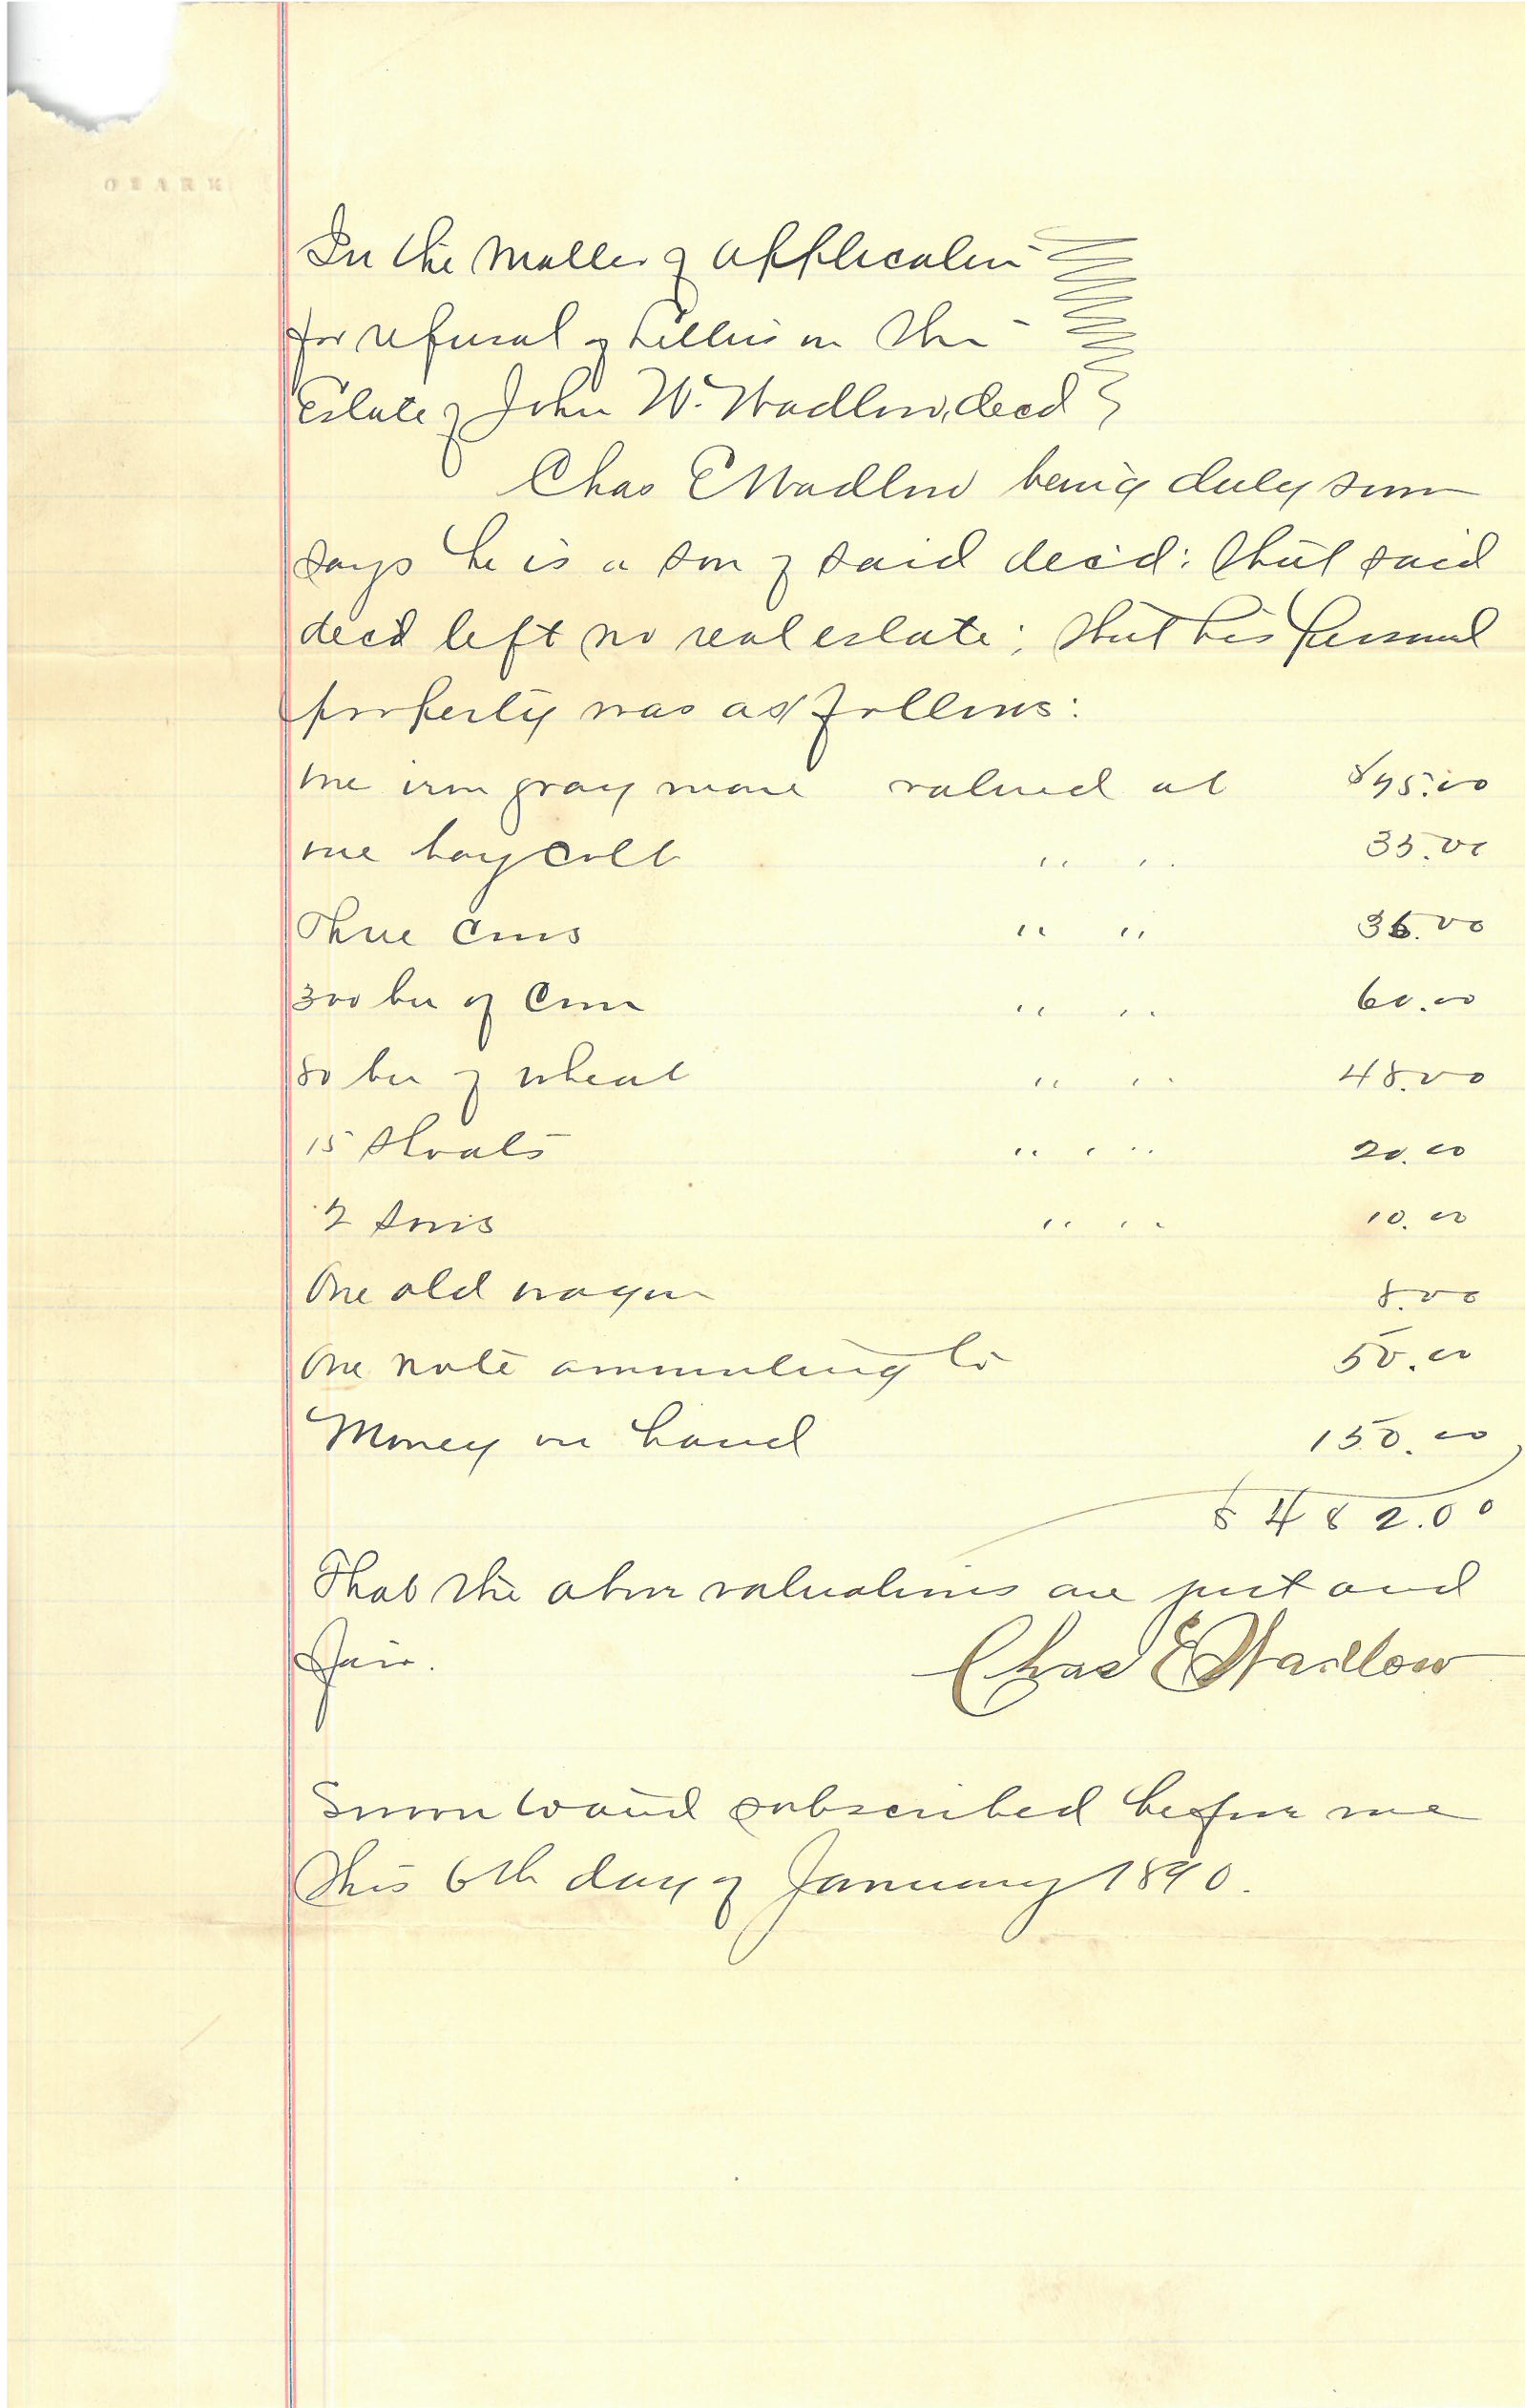 OZARK
In the Matter of application
for refusal of Letters on the
Estate of John W. Wadlow, decd
Chas E Wadlow being duly sworn
says he is a son of said dec'd: that said
decd left no real estate; that his personal
property was as follows:
one iron gray mare valued at $75.00
one bay colt " " 35.00
Three cows " " 36.00
300 bu of corn " " 60.00
80 bu of wheat " " 48.00
15 shoats " " 20.00
2 sows " " 10.00
One old wagon 8.00
One note amounting to 50.00
Money on hand 150.00
$482.00
That the above valuations are just and
fair. Chas E Wadlow
Sworn to and subscribed before me
this 6th day of January 1890.